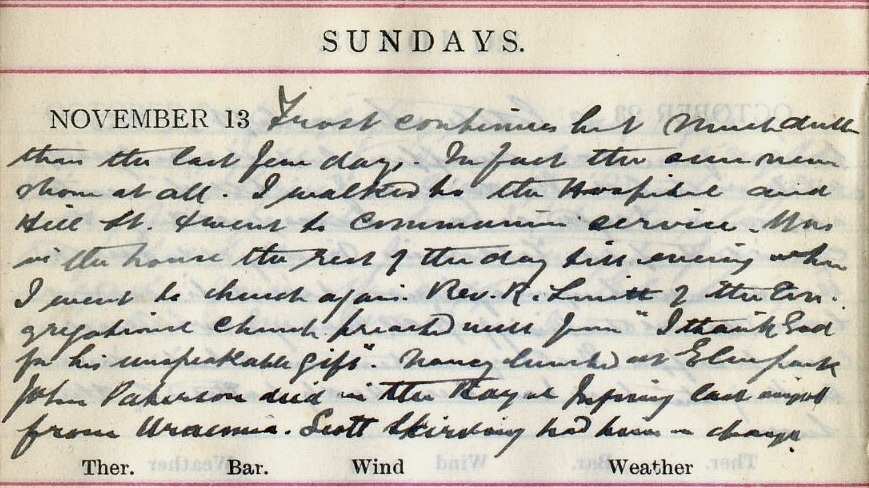 SUNDAYS.
NOVEMBER 13 Frost continues but much duller
than the last few days. In fact the sun never
shone at all. I walked to the Hospital and
Hill St. & went to Communion service. Was
in the house the rest of the day till evening when
I went to church again. Rev. R. Smith of the Con-
gregational Church preached well from "I thank God
for his unspeakable gift". Nancy lunched at Elmpark
John Paterson died in the Royal Infirmy last night
from Uraemia. Scott Skirving had been in charge.
Ther. Bar. Wind Weather